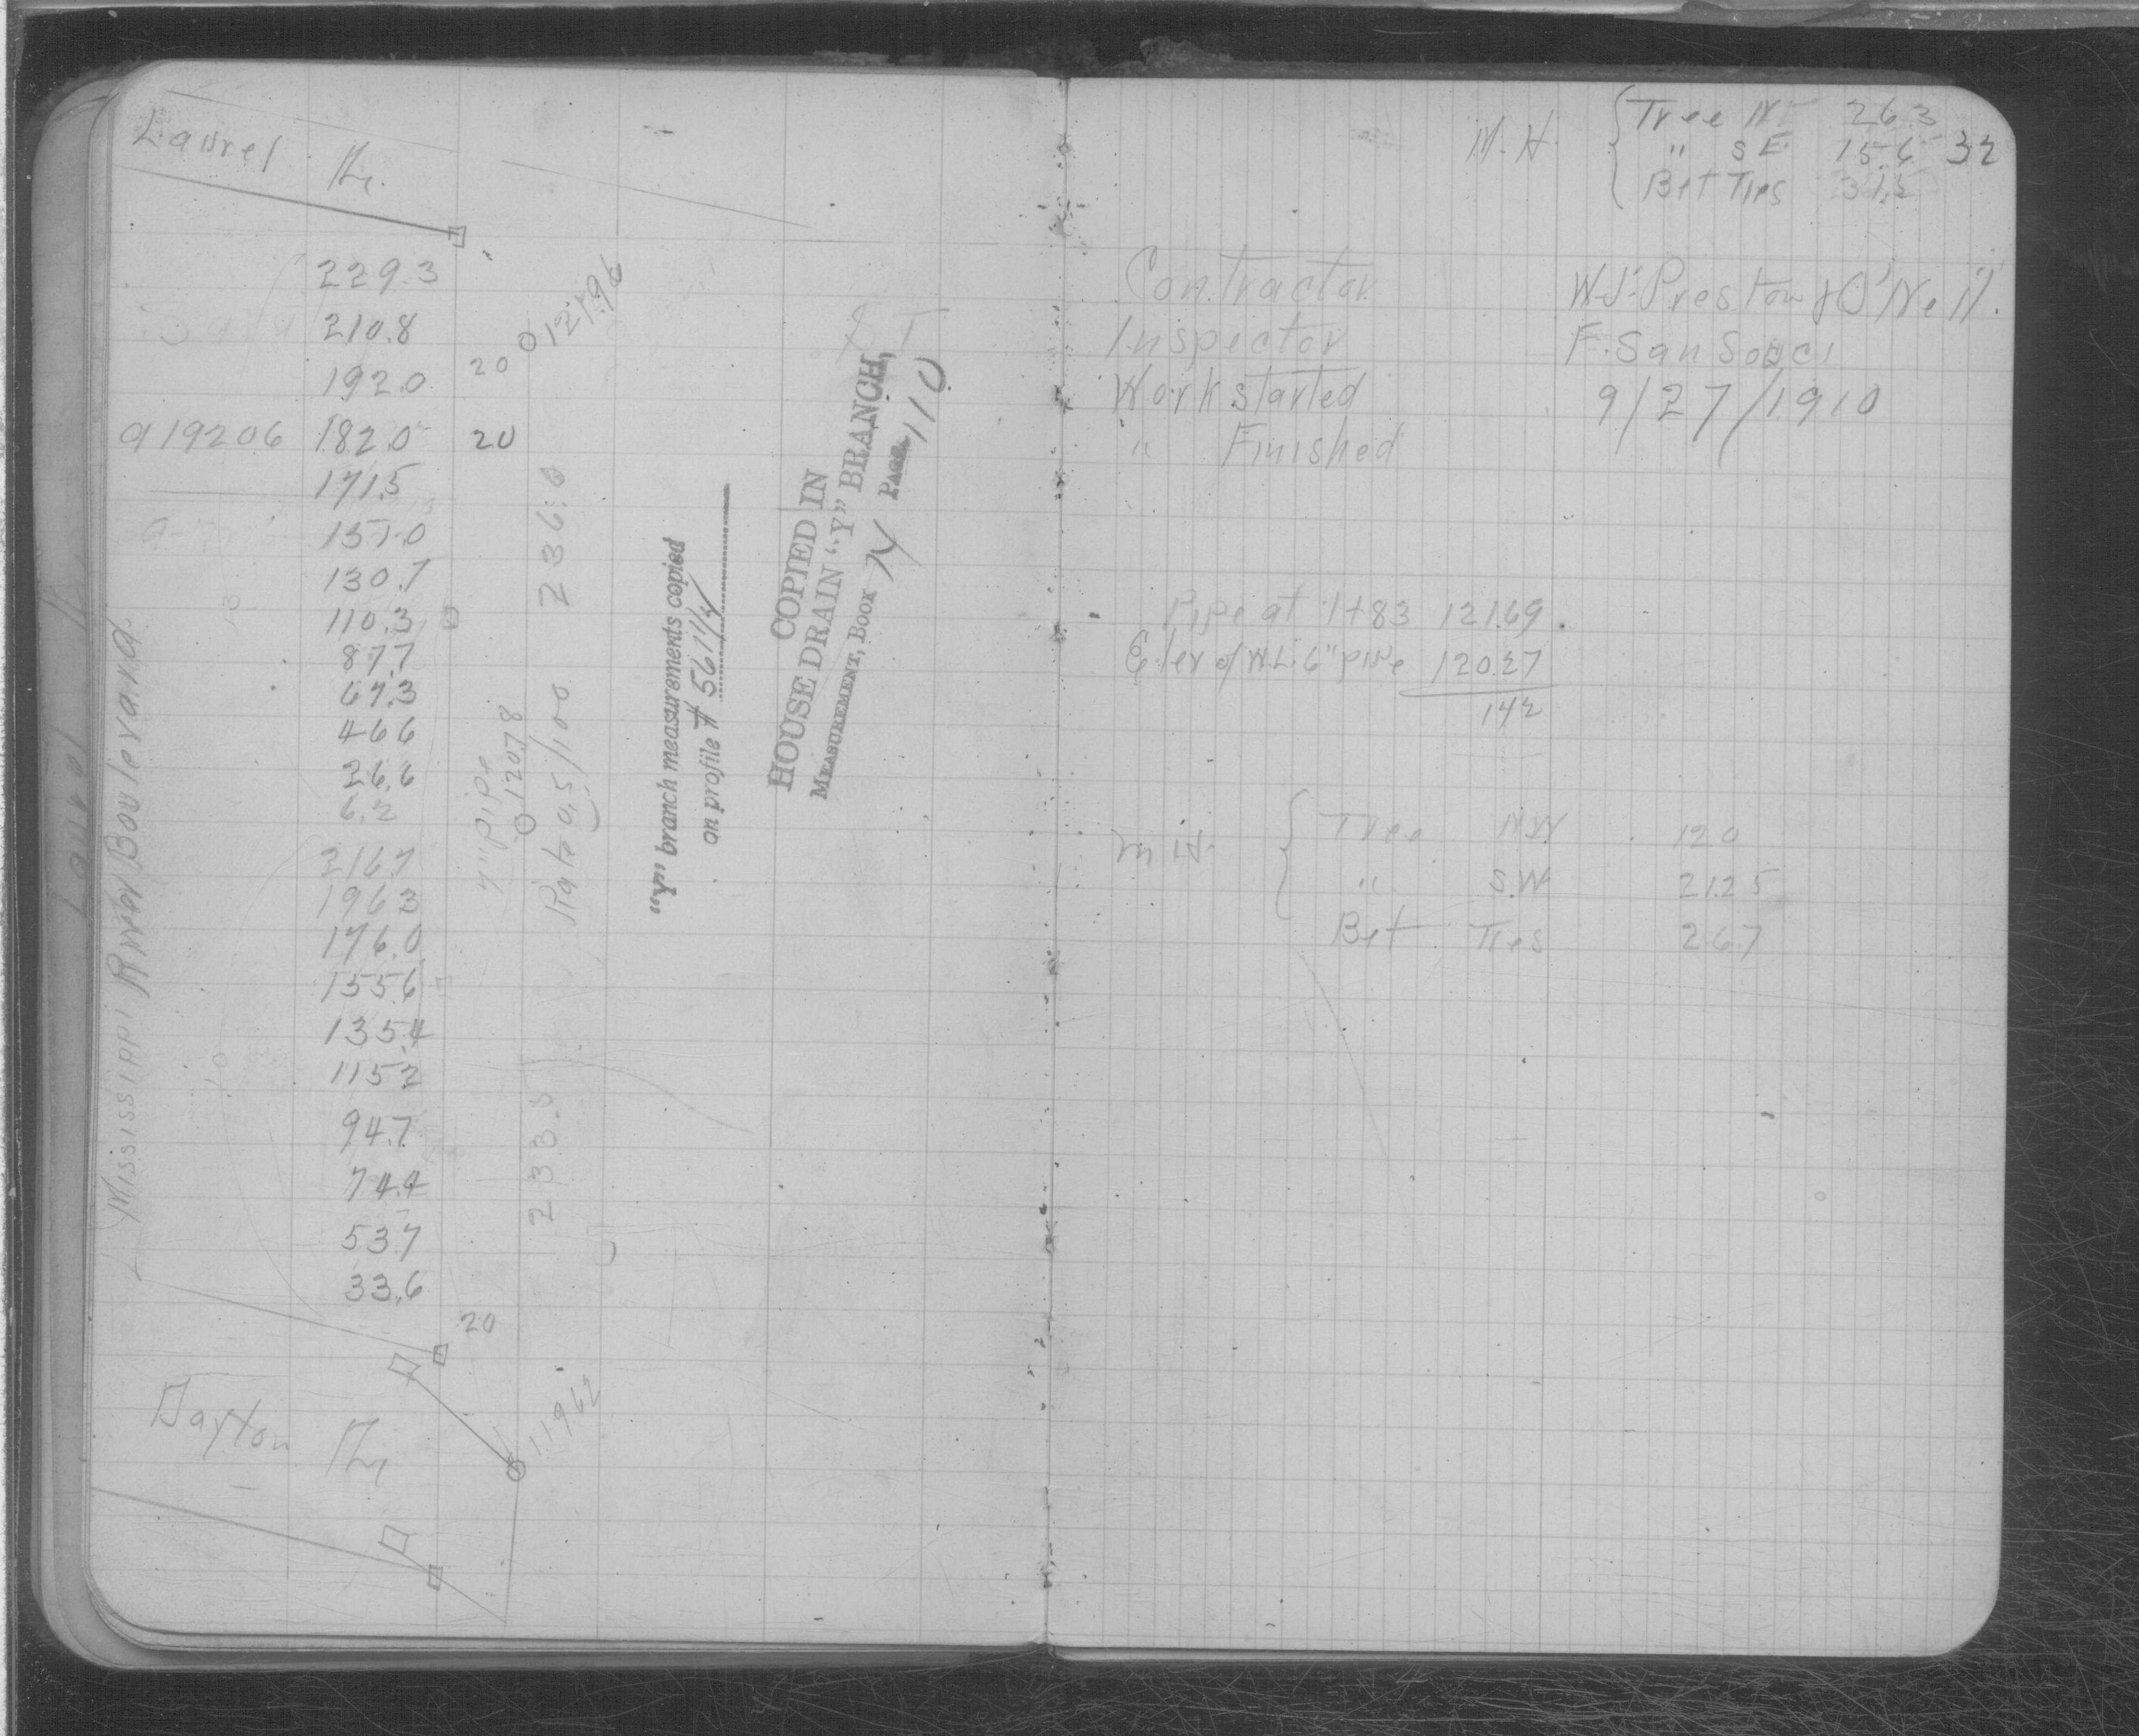 Laurel
229.3
210.8
192.0 20
a 19206 182.0 20
171.5
151.0
130.7
110.3
87.7
67.3
46.6
26.6
6.2
216.7
196.3
176.0
155.6
135.4
115.2
94.7
74.4
53.7
33.6
20
Dayton
Mississippi River Boulevard
121.96
236.0
pipe
120.78
Rate 0.5/100
233.5
119.62
"Y" branch measurements copied
on profile # 561 1/4
COPIED IN
HOUSE DRAIN "Y" BRANCH,
MEASUREMENT, BOOK 14 PAGE 110
M.H. Tree NE 26.3
" SE 15.6 32
Bet Ties 31.5
Contractor W.J. Preston & O'Neil.
Inspector F. San Souci
Work started 9/27/1910
" Finished
Pipe at 1+83 121.69
Elev of W.L. 6" pipe 120.27
1.42
M.H. Tree N.W 12.0
" S.W 21.25
Bet Ties 26.7